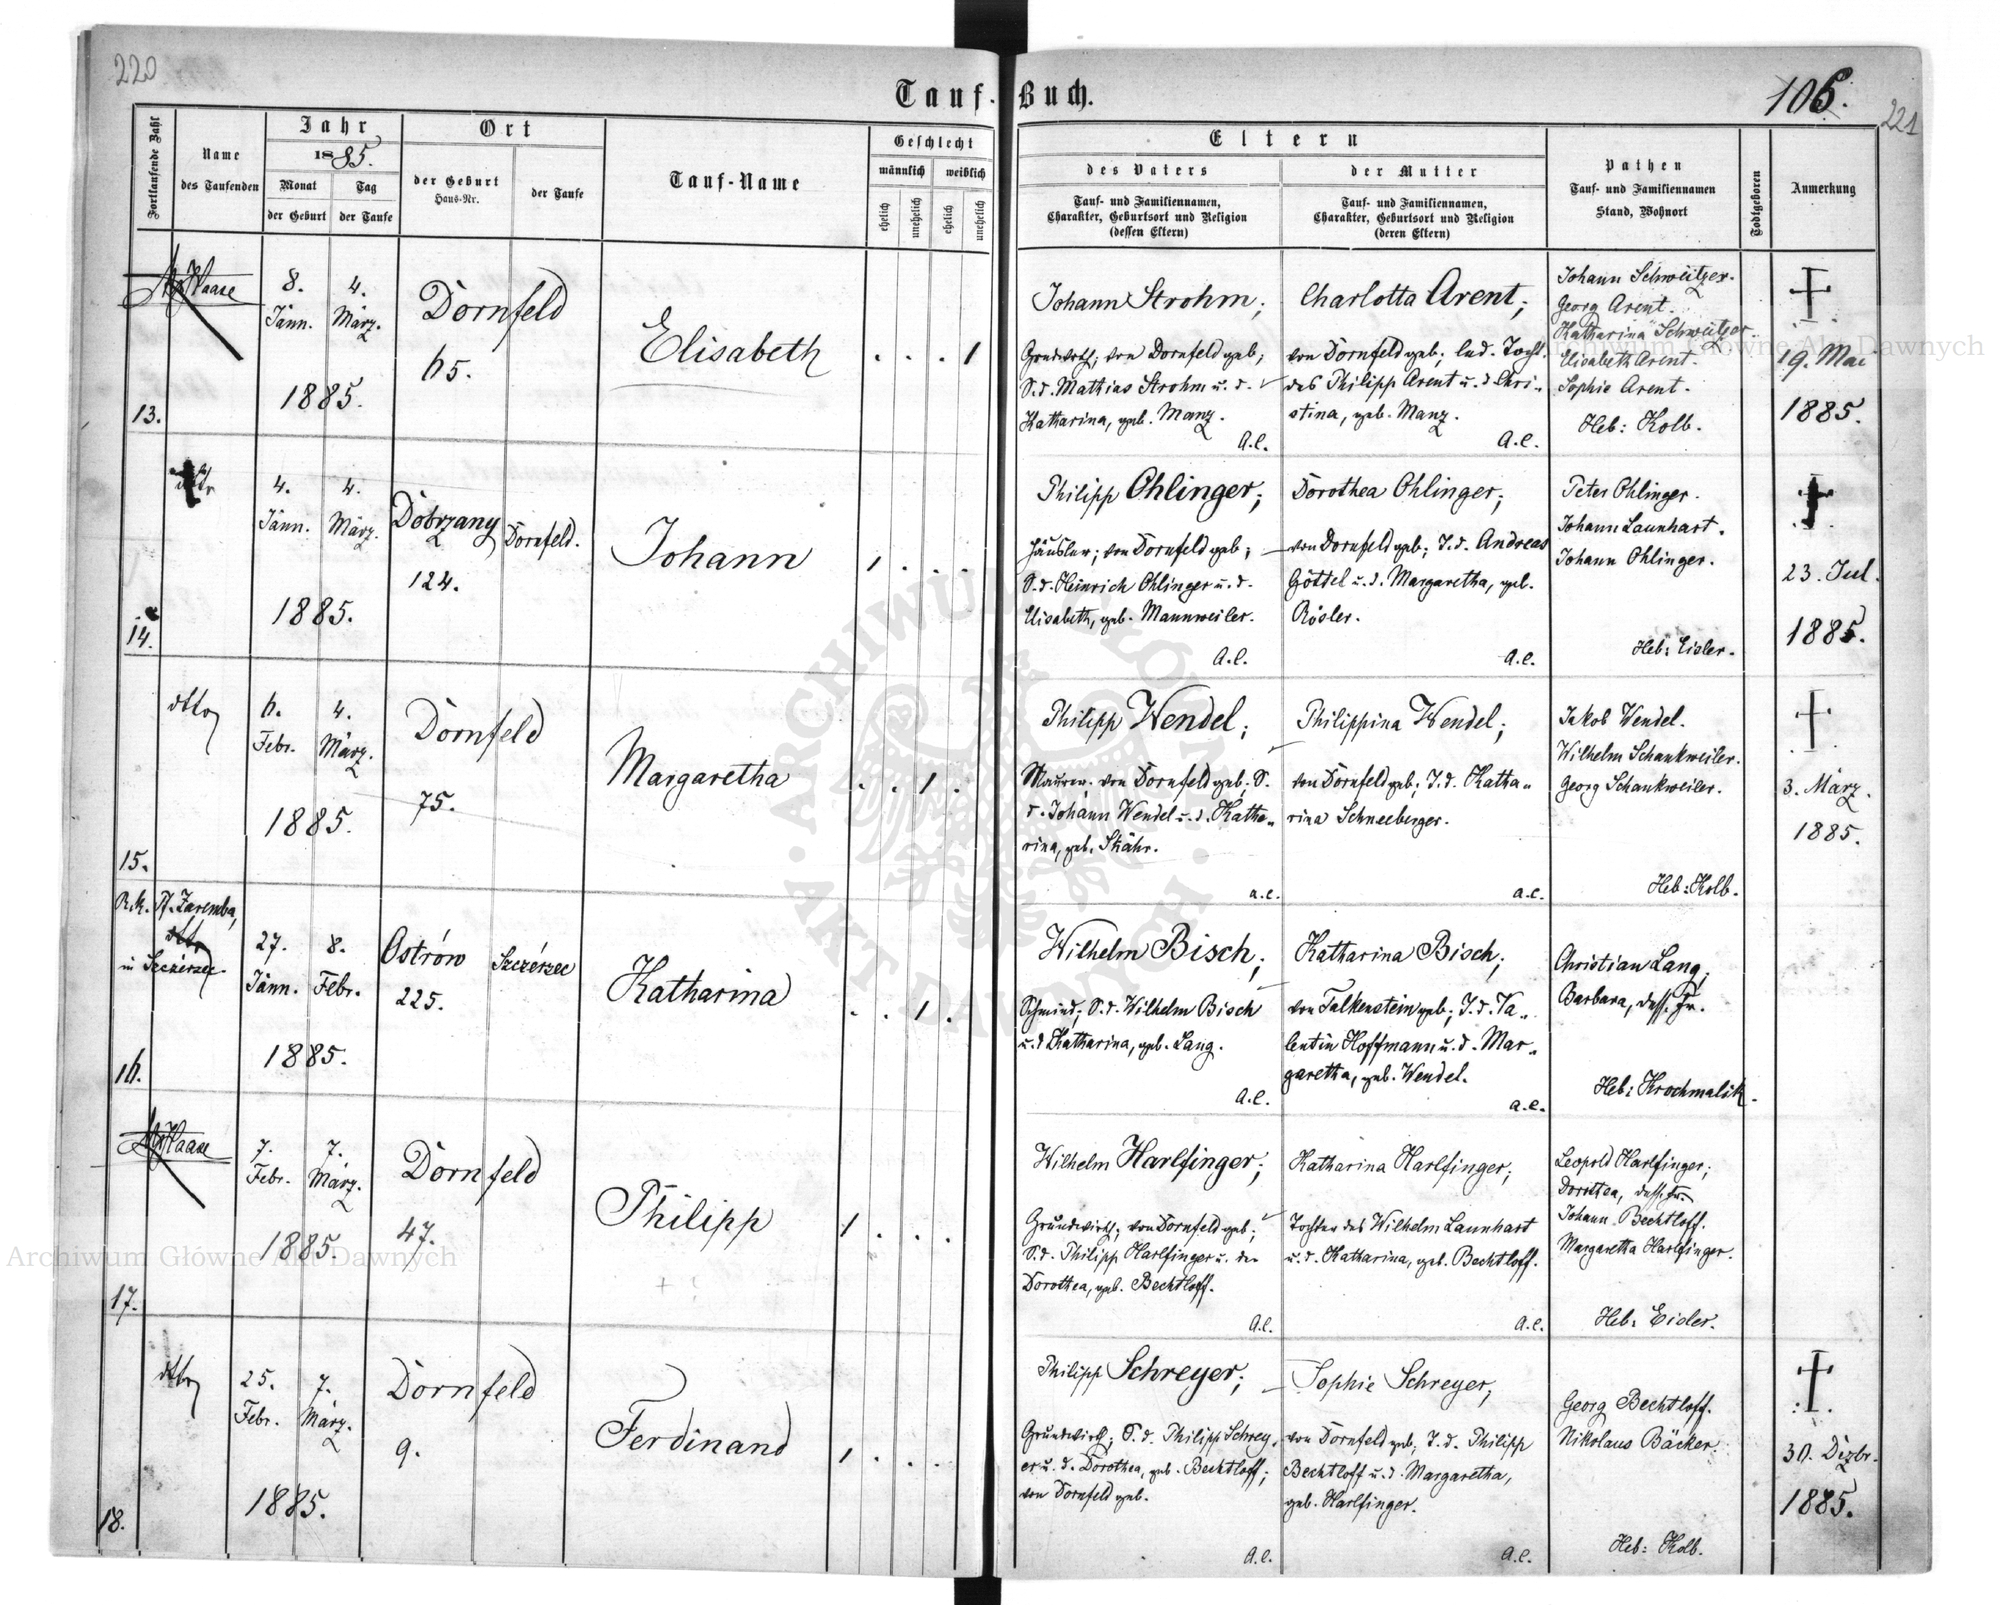 220
Tauf-Buch.
106.
221
Fortlaufende Zahl
Name
des Taufenden
Jahr
1885.
Monat
der Geburt
Tag
der Taufe
Ort
der Geburt
Haus-Nr.
der Taufe
Tauf-Name
Geschlecht
männlich
weiblich
ehelich
unehelich
ehelich
unehelich
Eltern
des Vaters
Tauf- und Familiennamen,
Charakter, Geburtsort und Religion
(dessen Eltern)
der Mutter
Tauf- und Familiennamen,
Charakter, Geburtsort und Religion
(deren Eltern)
Pathen
Tauf- und Familiennamen
Stand, Wohnort
Todtgeboren
Anmerkung
13.
Haase
8.
Jänn.
4.
März.
1885.
Dornfeld
65.
Elisabeth
. . . 1
Johann Strohm;
Grundwirth; von Dornfeld geb;
S. d. Mathias Strohm u. d.
Katharina, geb. Manz.
A.C.
Charlotta Arent;
von Dornfeld geb; led. Tocht.
des Philipp Arent u. d. Chri-
stina, geb. Manz.
A.C.
Johann Schweitzer.
Georg Arent.
Katharina Schweitzer.
Elisabeth Arent.
Sophie Arent.
Heb: Kolb.
19. Mai
1885.
14.
dtto
4.
Jänn.
4.
März.
1885.
Dobrzany
124.
Dornfeld.
Johann
1 . . .
Philipp Ohlinger;
Häusler; von Dornfeld geb;
S. d. Heinrich Ohlinger u. d.
Elisabeth, geb. Mannweiler.
A.C.
Dorothea Ohlinger;
von Dornfeld geb; T. d. Andreas
Göttel u. d. Margaretha, geb.
Rösler.
A.C.
Peter Ohlinger.
Johann Launhart.
Johann Ohlinger.
Heb: Eisler.
23. Jul.
1885.
15.
dtto
6.
Febr.
4.
März.
1885.
Dornfeld
75.
Margaretha
. . 1 .
Philipp Wendel;
Maurer. von Dornfeld geb; S.
d. Johann Wendel u. d. Katha-
rina, geb. Stähr.
a.c.
Philippina Wendel;
von Dornfeld geb; T. d. Katha-
rina Schneeberger.
a.c.
Jakob Wendel.
Wilhelm Schankweiler.
Georg Schankweiler.
Heb: Kolb.
3. März.
1885.
R.k. Pf. Zaremba,
dtto
in Szczérzec.
16.
27.
Jänn.
8.
Febr.
1885.
Ostrów
225.
Szczérzec
Katharina
. . 1 .
Wilhelm Bisch;
Schmied; S. d. Wilhelm Bisch
u. d Katharina, geb. Lang.
A.C.
Katharina Bisch;
von Falkenstein geb; T. d. Va-
lentin Hoffmann u. d. Mar-
garetha, geb. Wendel.
a.c.
Christian Lang;
Barbara, dess. Fr.
Heb: Krochmalik.
17.
Haase
7.
Febr.
7.
März.
1885.
Dornfeld
47.
Philipp
1 . . .
Wilhelm Harlfinger;
Grundwirth; von Dornfeld geb;
S. d. Philipp Harlfinger u. der
Dorothea, geb. Bechtloff.
A.C.
Katharina Harlfinger;
Tochter des Wilhelm Launhart
u. d. Katharina, geb. Bechtloff.
A.C.
Leopold Harlfinger;
Dorothea, dess. Fr.
Johann Bechtloff.
Margaretha Harlfinger.
Heb: Eisler.
18.
dtto
25.
Febr.
7.
März.
1885.
Dornfeld
9.
Ferdinand
1 . . .
Philipp Schreyer;
Grundwirth; S. d. Philipp Schrey-
er u. d. Dorothea, geb. Bechtloff;
von Dornfeld geb.
A.C.
Sophie Schreyer;
von Dornfeld geb; T. d. Philipp
Bechtloff u. d. Margaretha,
geb. Harlfinger.
A.C.
Georg Bechtloff.
Nikolaus Bäcker.
Heb: Kolb.
30. Dezbr.
1885.
Archiwum Główne Akt Dawnych
Archiwum Główne Akt Dawnych
ARCHIWUM GŁÓWNE AKT DAWNYCH